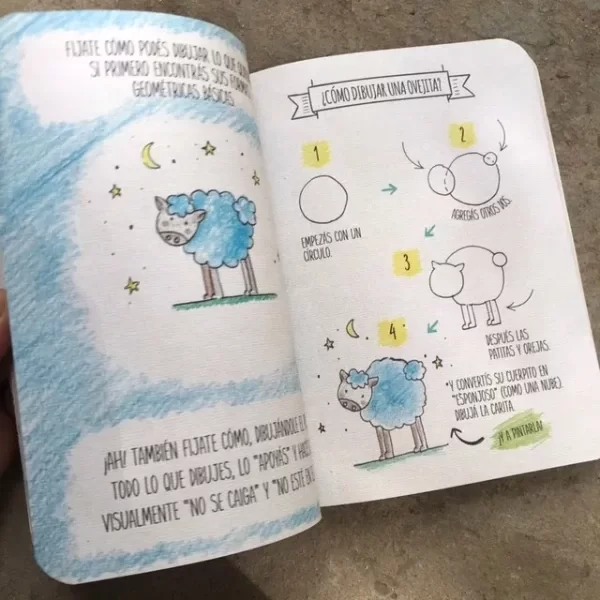 FIJATE CÓMO PODÉS DIBUJAR LO QUE
SI PRIMERO ENCONTRÁS SUS
GEOMÉTRICAS BÁSICAS
¡AH! TAMBIÉN FIJATE CÓMO, DIBUJÁNDOLE
TODO LO QUE DIBUJES, LO "APOYÁS" Y
VISUALMENTE "NO SE CAIGA" Y "NO ESTÉ
¿CÓMO DIBUJAR UNA OVEJITA?
1
EMPEZÁS CON UN
CÍRCULO.
2
AGREGÁS OTROS DOS.
3
DESPUÉS LAS
PATITAS Y OREJAS.
4
"Y CONVERTÍS SU CUERPITO EN
"ESPONJOSO" (COMO UNA NUBE).
DIBUJÁ LA CARITA.
¡Y A PINTARLA!